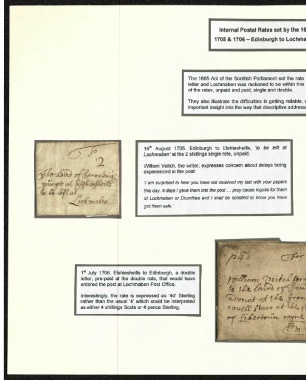 Internal Postal Rates set by the 16
1705 & 1706 – Edinburgh to Lochma
The 1695 Act of the Scottish Parliament set the rate
letter and Lochmaben was reckoned to be within this
of the rates, unpaid and paid, single and double.
They also illustrate the difficulties in getting reliable,
important insight into the way that descriptive addresse
16th August 1705. Edinburgh to Elshieshells, 'to be left at
Lochmaben' at the 2 shillings single rate, unpaid.
William Veitch, the writer, expresses concern about delays being
experienced in the post:
'I am surprised to hear you have not received my last with your papers
this day. 8 days I gave them into the post ... pray cause inquire for them
at Lochmaben or Drumfries and I shall be satisfied to know you have
got them safe.'
To
2
The Laird of
at
to be left at
Lochmaben
1st July 1706. Elshieshells to Edinburgh, a double
letter, pre-paid at the double rate, that would have
entered the post at Lochmaben Post Office.
Interestingly, the rate is expressed as '4d' Sterling
rather than the usual '4' which could be interpreted
as either 4 shillings Scots or 4 pence Sterling.
For
William Veitch
to the Laird of
at the
at the
of